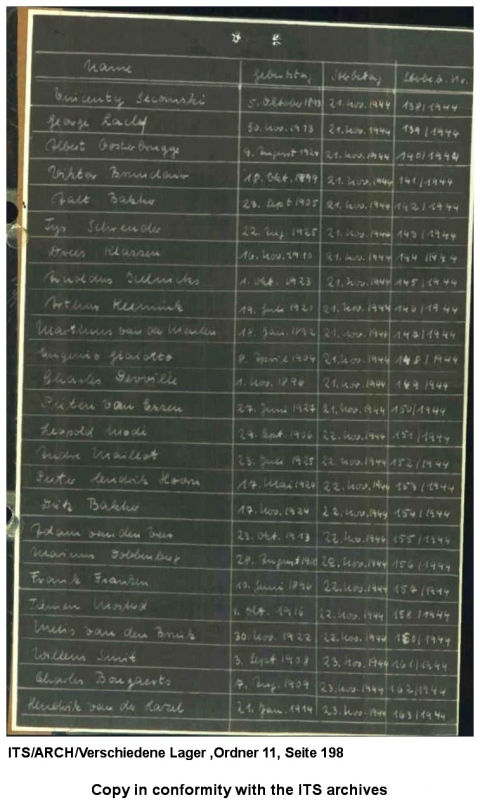 Name Geburtstag Sterbetag Sterbeb. Nr.
Vincenty Secomski 5. Oktober 21. Nov. 1944 138/1944
George 30. Nov. 1913 21. Nov. 1944 139/1944
Albert Oosterbrugge 9. August 21. Nov. 1944 140/1944
Viktor 18. Okt. 1899 21. Nov. 1944 141/1944
Jalt Bakker 23. Sept 1905 21. Nov. 1944 142/1944
Tys Schreuder 22. Aug. 1925 21. Nov. 1944 143/1944
Dries Klassen 16. Nov. 1910 21. Nov. 1944 144/1944
Arnoldus 1. Okt. 1923 21. Nov. 1944 145/1944
Arthur 19. Juli 1921 21. Nov. 1944 146/1944
Marthinus van der Meulen 17. Jan. 1892 21. Nov. 1944 147/1944
Eugenio 8. April 1904 21. Nov. 1944 148/1944
Charles Derville 1. Nov. 1896 21. Nov. 1944 149/1944
van Essen 27. Juni 1927 21. Nov. 1944 150/1944
Leopold Modi 29. Sept. 1906 22. Nov. 1944 151/1944
Andre Maillot 23. Juli 1925 22. Nov. 1944 152/1944
Pieter Hendrik Hoorn 17. Mai 1924 22. Nov. 1944 153/1944
Bakker 17. Nov. 1924 22. Nov. 1944 154/1944
Adam van den Veer 23. Okt. 1913 22. Nov. 1944 155/1944
Marinus Dobbenberg 28. August 22. Nov. 1944 156/1944
Frank Franken 10. Juni 1896 22. Nov. 1944 157/1944
Okt. 1916 22. Nov. 1944 158/1944
Melis van den Brink 30. Nov. 1922 22. Nov. 1944 160/1944
Willem Smit 3. Sept 1908 23. Nov. 1944 161/1944
Charles Bongaerts 7. Aug. 1909 23. Nov. 1944 162/1944
Hendrik van de Hazel 21. Jan. 1914 23. Nov. 1944 163/1944
ITS/ARCH/Verschiedene Lager ,Ordner 11, Seite 198
Copy in conformity with the ITS archives